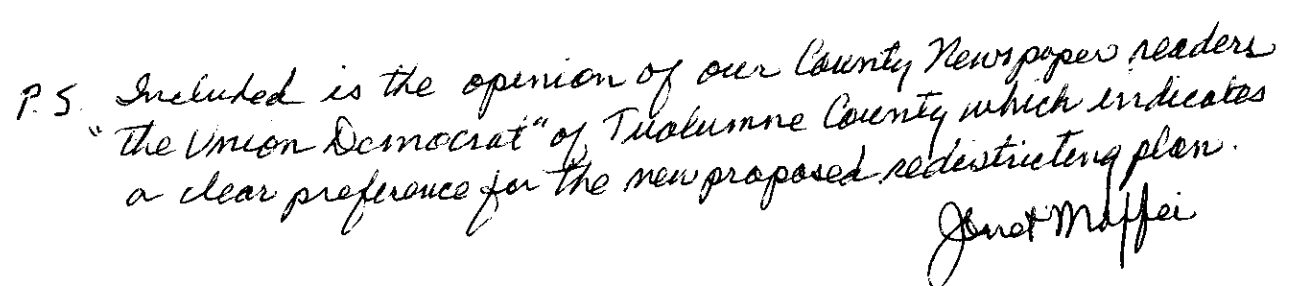 P.S. Included is the opinion of our County Newspaper readers
"The Union Democrat" of Tuolumne County which indicates
a clear preference for the new proposed redistricting plan.
Janet Maffei